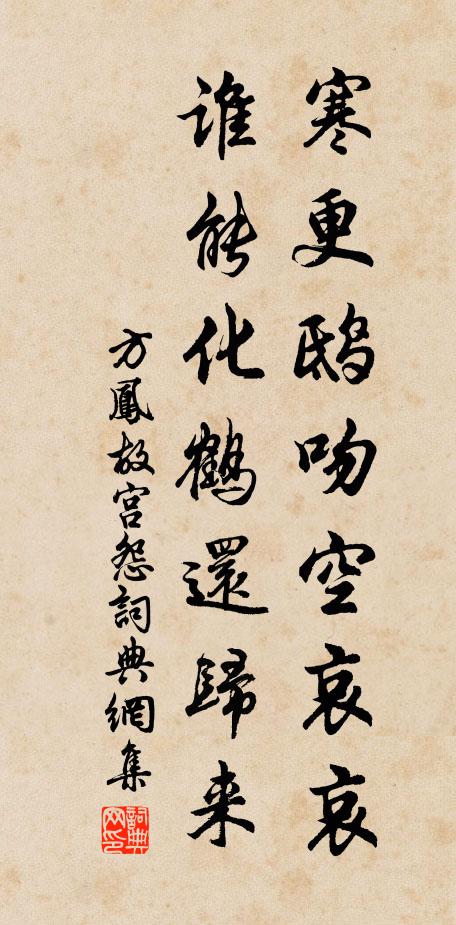 寒更鴟吻空哀哀
誰能化鶴還歸来
方鳳故宮怨詞典網集
詞典网印